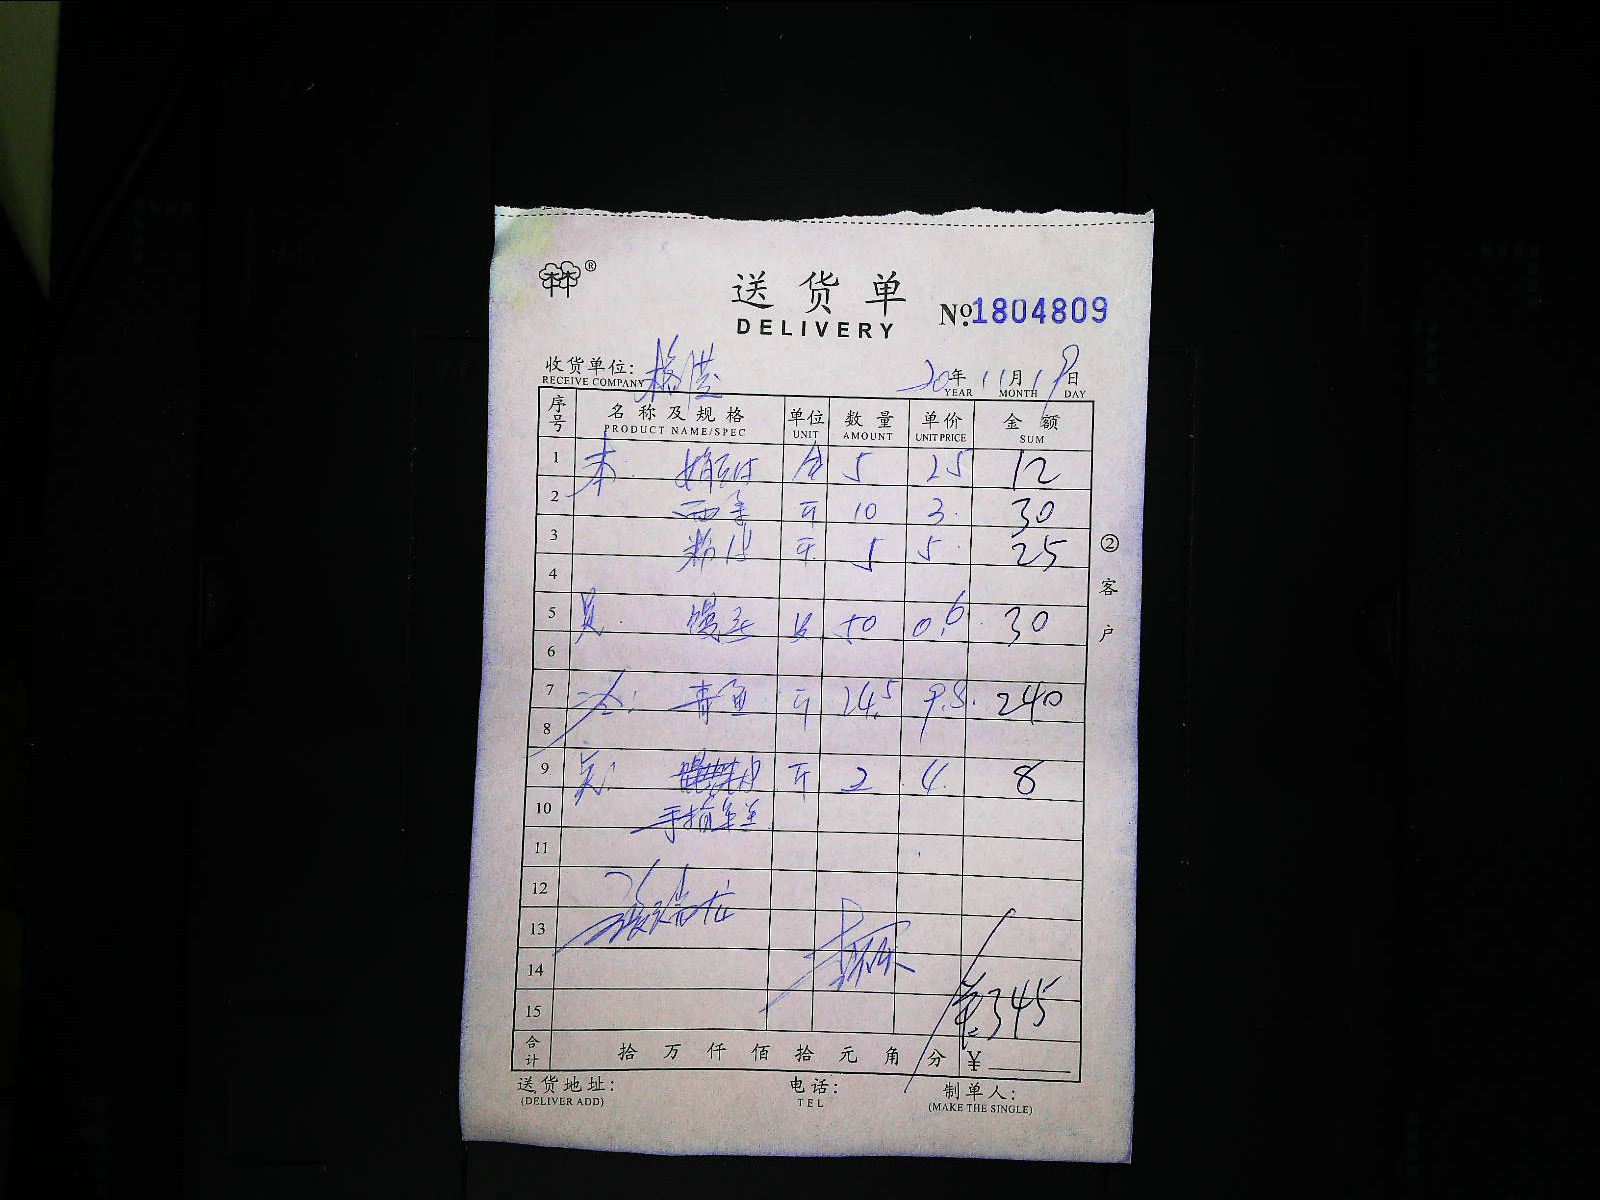 ®
送货单
DELIVERY
№1804809
收货单位:
RECEIVE COMPANY
20年11月19日
YEAR MONTH DAY
序号 名称及规格 单位 数量 单价 金额
PRODUCT NAME/SPEC UNIT AMOUNT UNIT PRICE SUM
1 5 25 12
2 西 斤 10 3. 30
3 粉皮 斤 5 5. 25
4
5 馒头 50 0.6 30
6
7 青鱼 斤 24.5 9.8. 240
8
9 斤 2 4. 8
10 手指
11
12
13
14
15 345
合计 拾万仟佰拾元角分 ¥
②客户
送货地址: 电话: 制单人:
(DELIVER ADD) TEL (MAKE THE SINGLE)